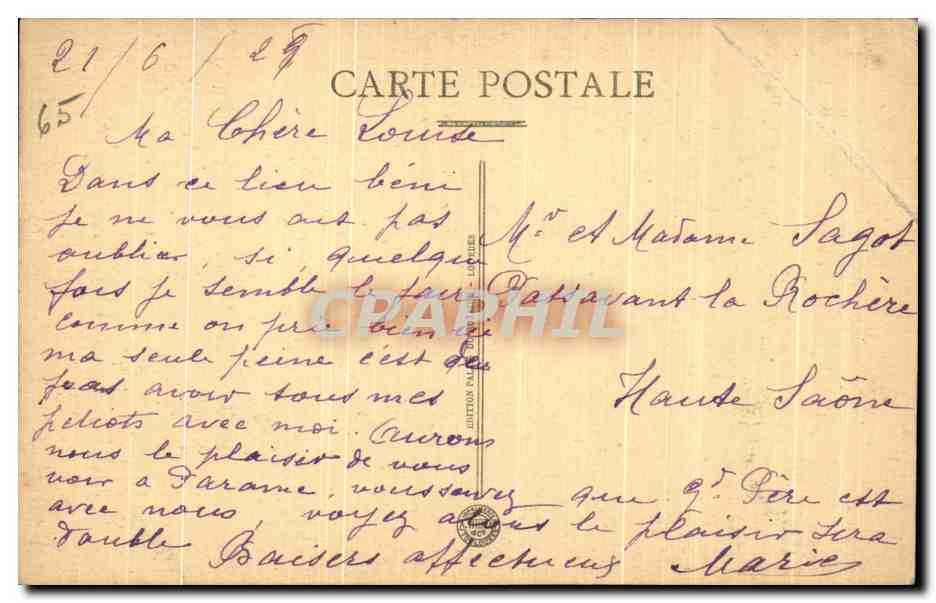 21/6/29
65
CARTE POSTALE
Ma Chère Louise
Dans ce lieu béni
je ne vous ait pas
oublier, si, quelque
fois je semble le faire
comme on prie bien ici
ma seule peine c'est de
pas avoir tous mes
petiots avec moi. Aurons
nous le plaisir de vous
voir a Parame, vous savez que gd Père est
avec nous, voyez a tous le plaisir sera
double Baisers affectueux Marie
EDITION PALAIS DU ROSAIRE - LOURDES
Mr et Madame Sagot
Passavant la Rochère
Haute Saône
CPAPHIL